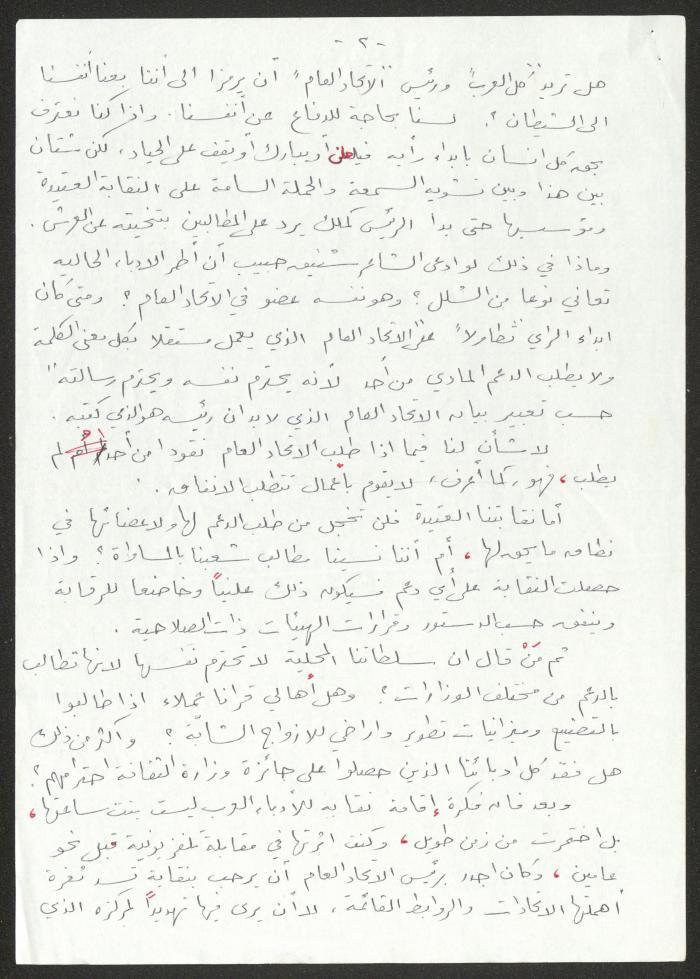 -٢-
هل تريد "كل العرب" ورئيس "الاتحاد العام" أن يرمزا الى أننا بعنا أنفسنا
الى الشيطان؟. لسنا بحاجة للدفاع عن أنفسنا. واذا كنا نعترف
بحق كل انسان بابداء رأيه فيعلن أو يبارك أو يقف على الحياد، لكن شتان
بين هذا وبين تشويه السمعة والحملة السامة على النقابة العتيدة
ومؤسسيها حتى بدا الرئيس كملك يرد على المطالبين بتنحيته عن العرش.
وماذا في ذلك لو ادعى الشاعر شفيق حبيب أن أطر الادباء الحاليه
تعاني نوعا من الشلل؟ وهو نفسه عضو في الاتحاد العام؟ ومتى كان
ابداء الرأي "تطاولا" على "الاتحاد العام الذي يعمل مستقلا بكل معنى الكلمة
ولا يطلب الدعم المادي من أحد لأنه يحترم نفسه ويحترم رسالته"
حسب تعبير بيان الاتحاد العام الذي لا بد ان رئيسه هو الذي كتبه.
لا شأن لنا فيما اذا طلب الاتحاد العام نقودا من أحد أم لم
يطلب، فهو، كما أعرف، لا يقوم بأعمال تتطلب الانفاق.
أما نقابتنا العتيدة فلن تخجل من طلب الدعم لها ولاعضائها في
نطاق ما يحق لها، أم أننا نسينا مطالب شعبنا بالمساواة؟ واذا
حصلت النقابة على أي دعم فسيكون ذلك علنياً وخاضعا للرقابة
وينفق حسب الدستور وقرارات الهيئات ذات الصلاحية.
ثم مَنْ قال ان سلطاتنا المحلية لا تحترم نفسها لانها تطالب
بالدعم من مختلف الوزارات؟ وهل أهالي قرانا عملاء اذا طالبوا
بالتصنيع وميزانيات تطوير واراضي للازواج الشابّة؟ واكثر من ذلك
هل فقد كل ادبائنا الذين حصلوا على جائزة وزارة الثقافة احترامهم؟
وبعد فان فكرة إقامة نقابة للأدباء العرب ليست بنت ساعتها،
بل اختمرت من زمن طويل، وكنت اثرتها في مقابلة تلفزيونية قبل نحو
عامين، وكان اجدر برئيس الاتحاد العام أن يرحب بنقابة تسد ثغرة
أهملتها الاتحادات والروابط القائمة، لا أن يرى فيها تهديداً لمركزه الذي